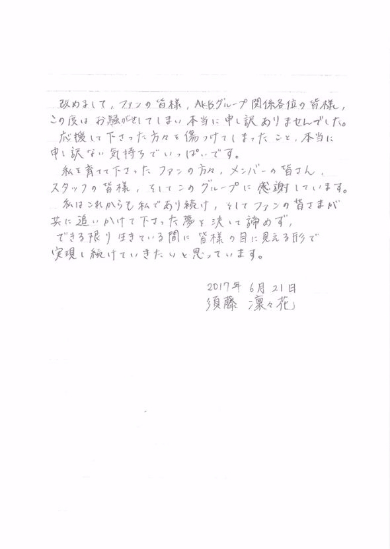 改めまして、ファンの皆様、AKBグループ関係各位の皆様、
この度は お騒がせしてしまい本当に申し訳ありませんでした。
応援して下さった方々を傷つけてしまったこと、本当に
申し訳ない気持ちでいっぱいです。
私を育てて下さったファンの方々、メンバーの皆さん、
スタッフの皆様、そしてこのグループに感謝しています。
私はこれからも私であり続け、そしてファンの皆さまが
共に追いかけて下さった夢を決して諦めず、
できる限り生きている間に皆様の目に見える形で
実現し続けていきたいと思っています。
2017年 6月21日
須藤 凜々花